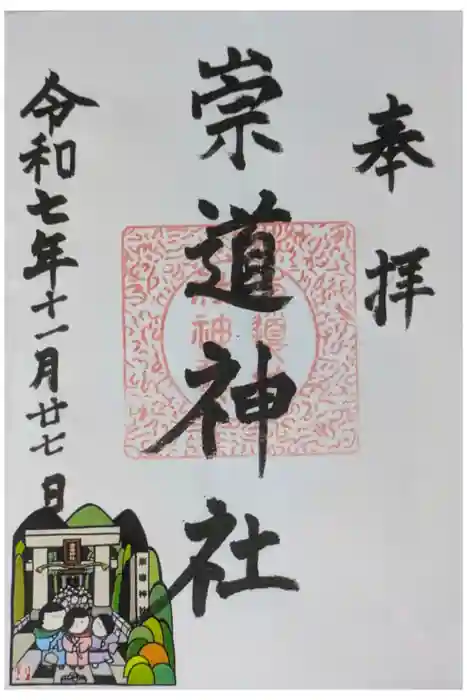 奉拝
崇道神社
令和七年十一月廿七日